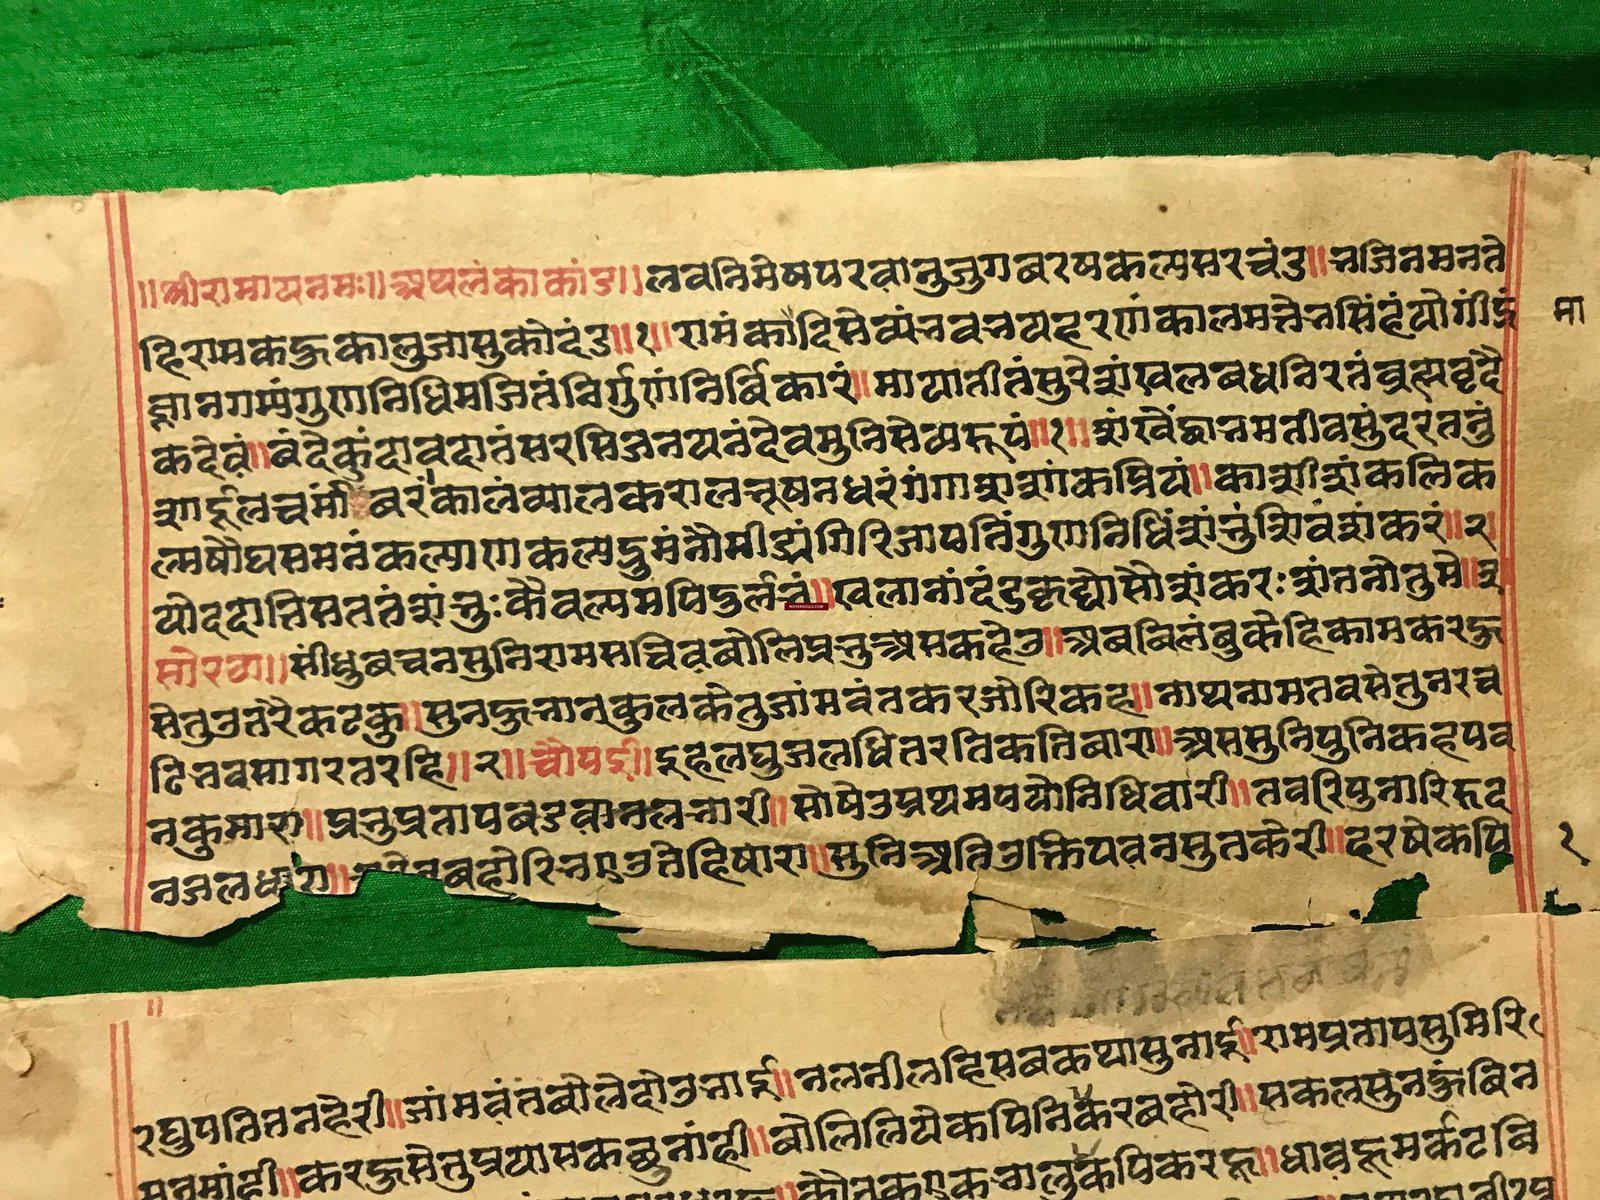 ॥श्रीरामाय नमः॥ अथ लंकाकांड॥ लव निमेष परवानु जुग बरष कल्प सर चंड॥ भजि न मन ते
हि राम कहु कालु जासु कोदंड॥१॥ रामं कामादि सेव्यं भव भय हरणं काल मत्तेभ सिंहं योगींद्रं
ज्ञान गम्यं गुणनिधि मजितं निर्गुणं निर्विकारं॥ मायातीतं सुरेशं खल बध निरतं ब्रह्म बृंदै
क देवं॥ बंदे कुंदावदातं सरसिज नयनं देव मुनि सेव्य रूपं॥१॥ शंखेंद्वाभ मतीव सुंदर तनुं
शार्दूल चर्मांबरं काल व्याल कराल भूषन धरं गंगा शशांक प्रियं॥ काशीशं कलि क
ल्मषौघ समनं कल्याण कल्पद्रुमं नौमीड्यं गिरिजापतिं गुणनिधिं शंभुं शिवं शंकरं॥२॥
यो ददाति सततं शंभुः कैवल्यमपि दुर्लभं॥ खलानां दंडकृद्योसौ शंकरः शं तनोतु मे॥३
सोरठा॥ सींधु बचन सुनि राम सचिव बोलि प्रभु अस कहेउ॥ अब बिलंबु केहि काम करहु
सेतु उतरै कटकु॥ सुनहु भानुकुल केतु जांमवंत कर जोरि कह॥ नाथ नाम तव सेतु नर च
ढि भव सागर तरहि॥२॥ चौपई॥ इह लघु जलधि तरति कति बारा॥ अस सुनि पुनि कह पव
न कुमारा॥ प्रभु प्रताप बडवानल भारी॥ सोषेउ प्रथम पयोनिधि वारी॥ तव रिपु नारि रुद
न जल धारा॥ बहोरि भएउ तेहि षारा॥ सुनि अति उक्ति पवनसुत केरी॥ हरषे कपि
मा
१
रघुपति तन हेरी॥ जांमवंत बोले दोउ भाई॥ नल नीलहि सब कथा सुनाई॥ राम प्रताप सुमिरि
मन मांही॥ करहु सेतु प्रयास कछु नांही॥ बोलि लिये कपि निकर बहोरी॥ सकल सुनहु बिन
कौतुक एक भालु कपि करहू॥ धावहु मर्कट बि